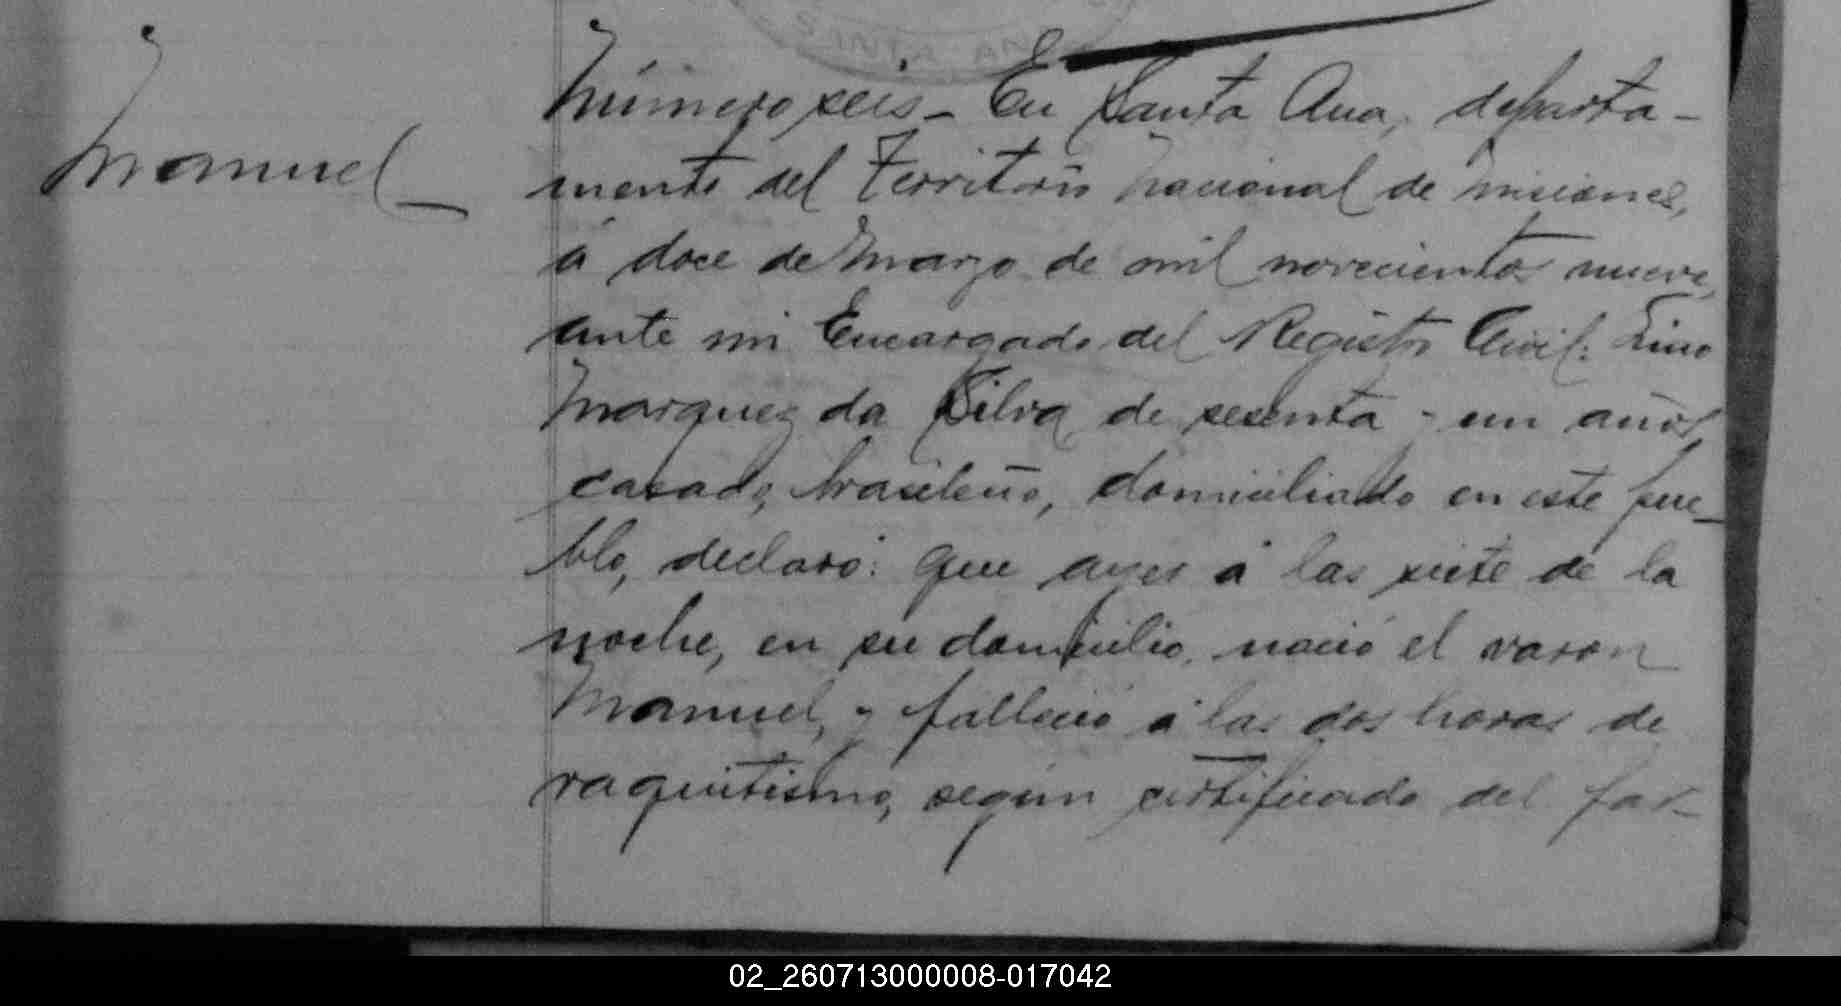 Manuel
Número seis_ En Santa Ana, departa-
mento del Territorio Nacional de Misiones,
á doce de Marzo de mil novecientos nueve,
ante mi Encargado del Registro Civil: Lino
Marquez da Silva de sesenta y un años
casado, brasileño, domiciliado en este pue-
blo, declaró: que ayer á las siete de la
noche, en su domicilio, nació el varon
Manuel, y falleció á las dos horas de
raquitismo, según certificado del far-
02_260713000008-017042